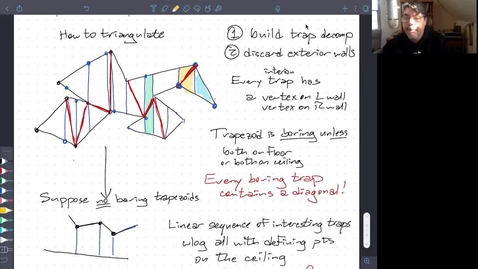 How to triangulate
① build trap decomp
② discard exterior walls
interior
Every trap has
a vertex on L wall
vertex on R wall
Trapezoid is boring unless
both on floor
or both on ceiling
Every boring trap
contains a diagonal!
Suppose no boring trapezoids
Linear sequence of interesting traps
wlog all with defining pts
on the ceiling